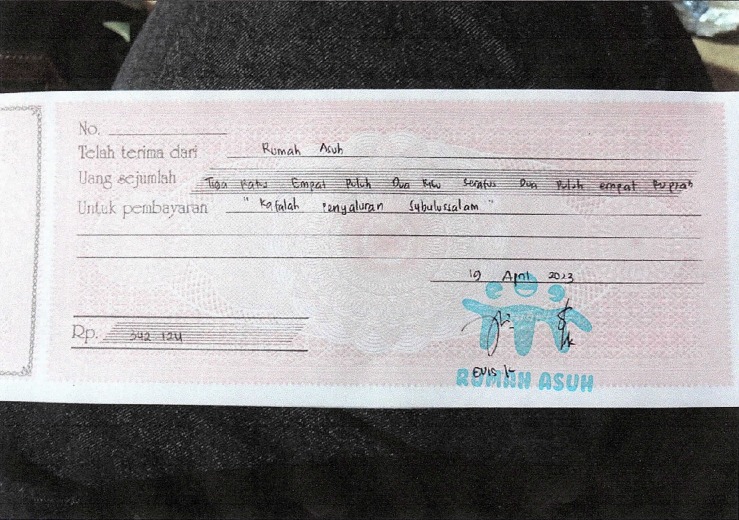 No.
Telah terima dari Rumah Asuh
Uang sejumlah Tiga Ratus Empat Puluh Dua Ribu Seratus Dua Puluh empat Rupiah
Untuk pembayaran "Kafalah Penyaluran Subulussalam"
19 April 2023
Rp. 342 124
EVIS K
RUMAH ASUH